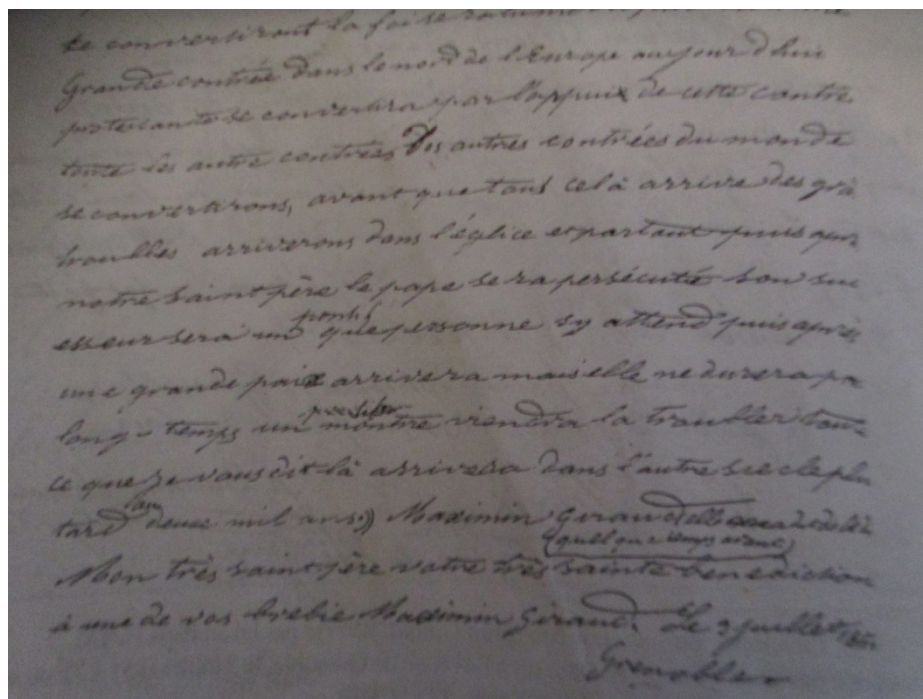 se convertiront la foi se
Grande contrée dans le nord de l'Europe aujourd'hui
protestante se convertira par l'appuix de cette contré
toute les autre contrées des autres contrées du monde
se convertirons, avant que tout celà arrive des grà
troubles arriverons dans l'église et partout puis après
notre saint père le pape sera persécutée son suc
esseur sera un pontif que personne sy attend puis après
une grande paix arrivera mais elle ne durera pa
long-temps un monstre viendra la troubler tout
ce que je vous dit là arrivera dans l'autre siecle plu
tard deux mil ans.)) Maximin Giraud elle
(quelque temps avant)
Mon très saint père votre très sainte benediction
à une de vos brebie Maximin Giraud. Le 3 juillet
Grenoble